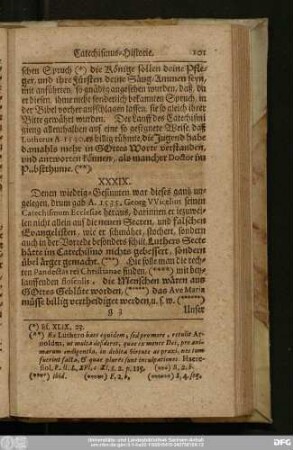 Catechismus-Historie. 101
schen Spruch (*) die Könige sollen deine Pfle-
ger, und ihre Fürsten deine Säug-Ammen seyn,
mit anführeten, so gnädig angesehen wurden, daß, da
er diesen, ihme nicht sonderlich bekannten Spruch, in
der Bibel vorher aufschlagen lassen, sie so gleich ihrer
Bitte gewähret wurden. Der Lauff des Catechismi
gieng allenthalben auf eine so gesegnete Weise, daß
Lutherus A. 1530. es billig rühmte die Jugend habe
damahls mehr in GOttes Wort verstanden,
und antworten können, als mancher Doctor im
Pabstthume. (**)
XXXIX.
Denen wiedrig-Gesinnten war dieses ganz un-
gelegen, drum gab A. 1535. Georg VVicelius seinen
Catechismum Ecclesiæ heraus, darinnen er
nicht allein auf die neuen Secten, und falschen
Evangelisten, wie er schmähet, stochert, sondern
auch in der Vorrede besonders schilt, Luthers Secte
hätte im Catechismo nichts gebessert, sondern
übel ärger gemacht. (***) Hie solle man die rech-
ten Pandectas rei Christianæ finden, (****) mit bey-
lauffenden flosculis, die Menschen wären aus
GOttes Geblüte worden, (*****) das Ave Maria
müsse billig vertheidiget werden, u. s. w. (******)
g 3 Unser
(*) Es. XLIX. 23.
(**) Ex Luthero hæc equidem, sed promere, retulit Ar-
noldus, ut multa desideret, quæ ex mente Dei, pro ani-
marum indigentia, in debita virtute ac praxi, nec tum
fuerint falsa, & quæ plures sunt inculpationes. Histor.
P. II. L. XVI. c. XI. § 2. p. 115. (***) B, 2. b.
(****) ibid. (*****) E, 2. b. (******) E, 4. seq.